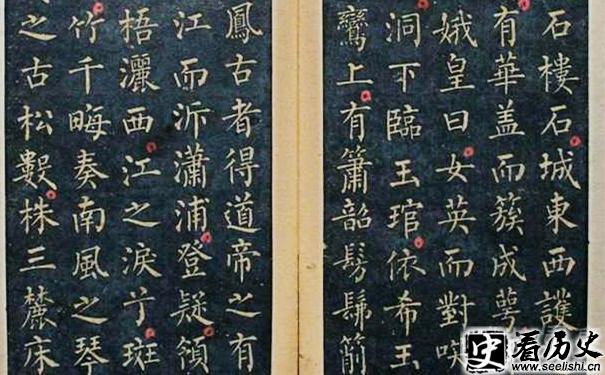 石樓石城東西護
有華盖而簇成萼
娥皇曰女英而對
洞下臨玉琯依希玉
鸞上有簫韶髣髴
鳳古者得道帝之有
江而泝瀟浦登疑領
梧灑西江之淚兮斑
竹千晦奏南風之琴
之古松數株三麓床
看历史
www.seelishi.cn